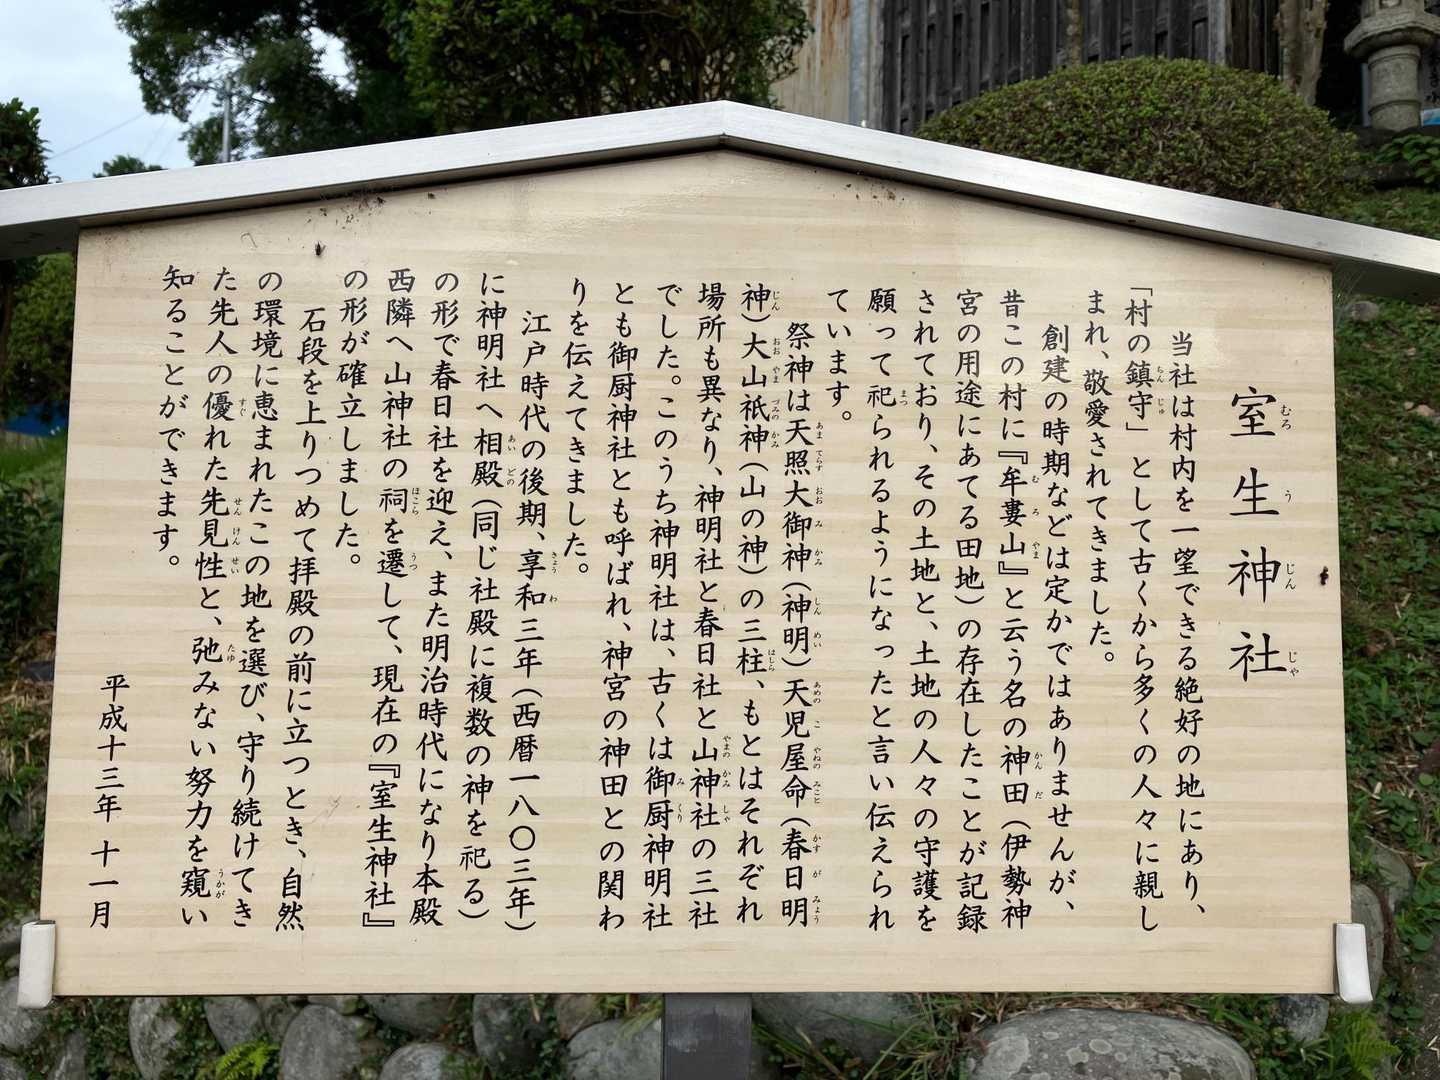 室生神社
当社は村内を一望できる絶好の地にあり、
「村の鎮守」として古くから多くの人々に親し
まれ、敬愛されてきました。
創建の時期などは定かではありませんが、
昔この村に『牟婁山』と云う名の神田（伊勢神
宮の用途にあてる田地）の存在したことが記録
されており、その土地と、土地の人々の守護を
願って祀られるようになったと言い伝えられ
ています。
祭神は天照大御神（神明）天児屋命（春日明
神）大山祇神（山の神）の三柱、もとはそれぞれ
場所も異なり、神明社と春日社と山神社の三社
でした。このうち神明社は、古くは御厨神明社
とも御厨神社とも呼ばれ、神宮の神田との関わ
りを伝えてきました。
江戸時代の後期、享和三年（西暦一八〇三年）
に神明社へ相殿（同じ社殿に複数の神を祀る）
の形で春日社を迎え、また明治時代になり本殿
西隣へ山神社の祠を遷して、現在の『室生神社』
の形が確立しました。
石段を上りつめて拝殿の前に立つとき、自然
の環境に恵まれたこの地を選び、守り続けてき
た先人の優れた先見性と、弛みない努力を窺い
知ることができます。
平成十三年 十一月